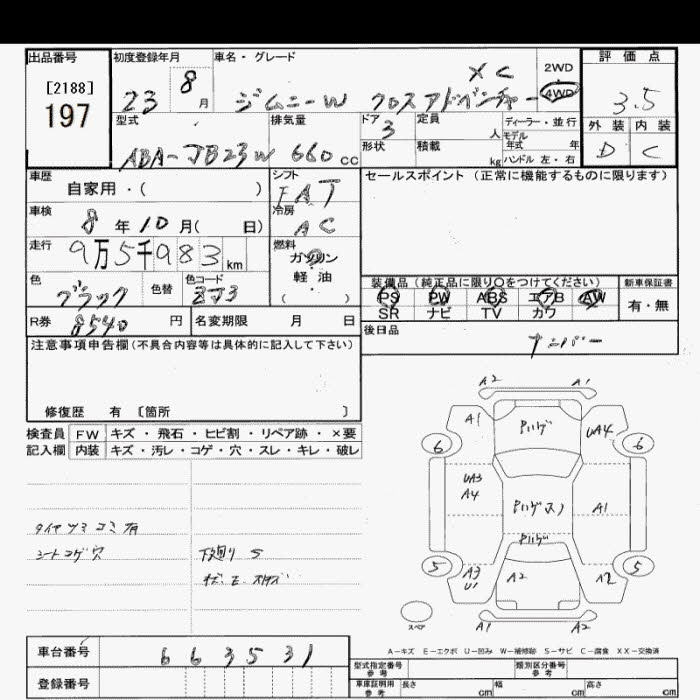 出品番号 初度登録年月 車名・グレード 評価点
[2188]
197
23 8月 ジムニーW クロスアドベンチャー XC 2WD 4WD 3.5
型式 排気量 ドア 定員 ディーラー・並行 外装 内装
ABA-JB23W 660cc 3 人 モデル年式 年 D C
形状 積載 kg ハンドル 左・右
車歴 シフト セールスポイント(正常に機能するものに限ります)
自家用・( ) FAT
車検 冷房
8年10月( 日) AC
走行 燃料
9万5千983km ガソリン
軽油
( )
色 色替 色コード 装備品(純正品に限り○をつけてください) 新車保証書
ブラック ZJ3 PS PW ABS エアB AW 有・無
SR ナビ TV カワ
R券 8540円 名変期限 月 日 後日品
ナンバー
注意事項申告欄(不具合内容等は具体的に記入して下さい)
修復歴 有〔箇所 〕
検査員 FW キズ・飛石・ヒビ割・リペア跡・×要
記入欄 内装 キズ・汚レ・コゲ・穴・スレ・キレ・破レ
タイヤツミコミ有
シートコゲ穴 下廻りS
A2 A1
A1 Pハゲ UA4
6 6
UA3
A4 Pハゲ A1
Pハゲ
5 A3 U1 A2 A2 5
スペア A1 A2
A-キズ E-エクボ U-凹み W-補修跡 S-サビ C-腐食 XX-交換済
車台番号 663531
登録番号
型式指定番号 参考 類別区分番号 参考
車庫証明用 参考 長さ cm 幅 cm 高さ cm